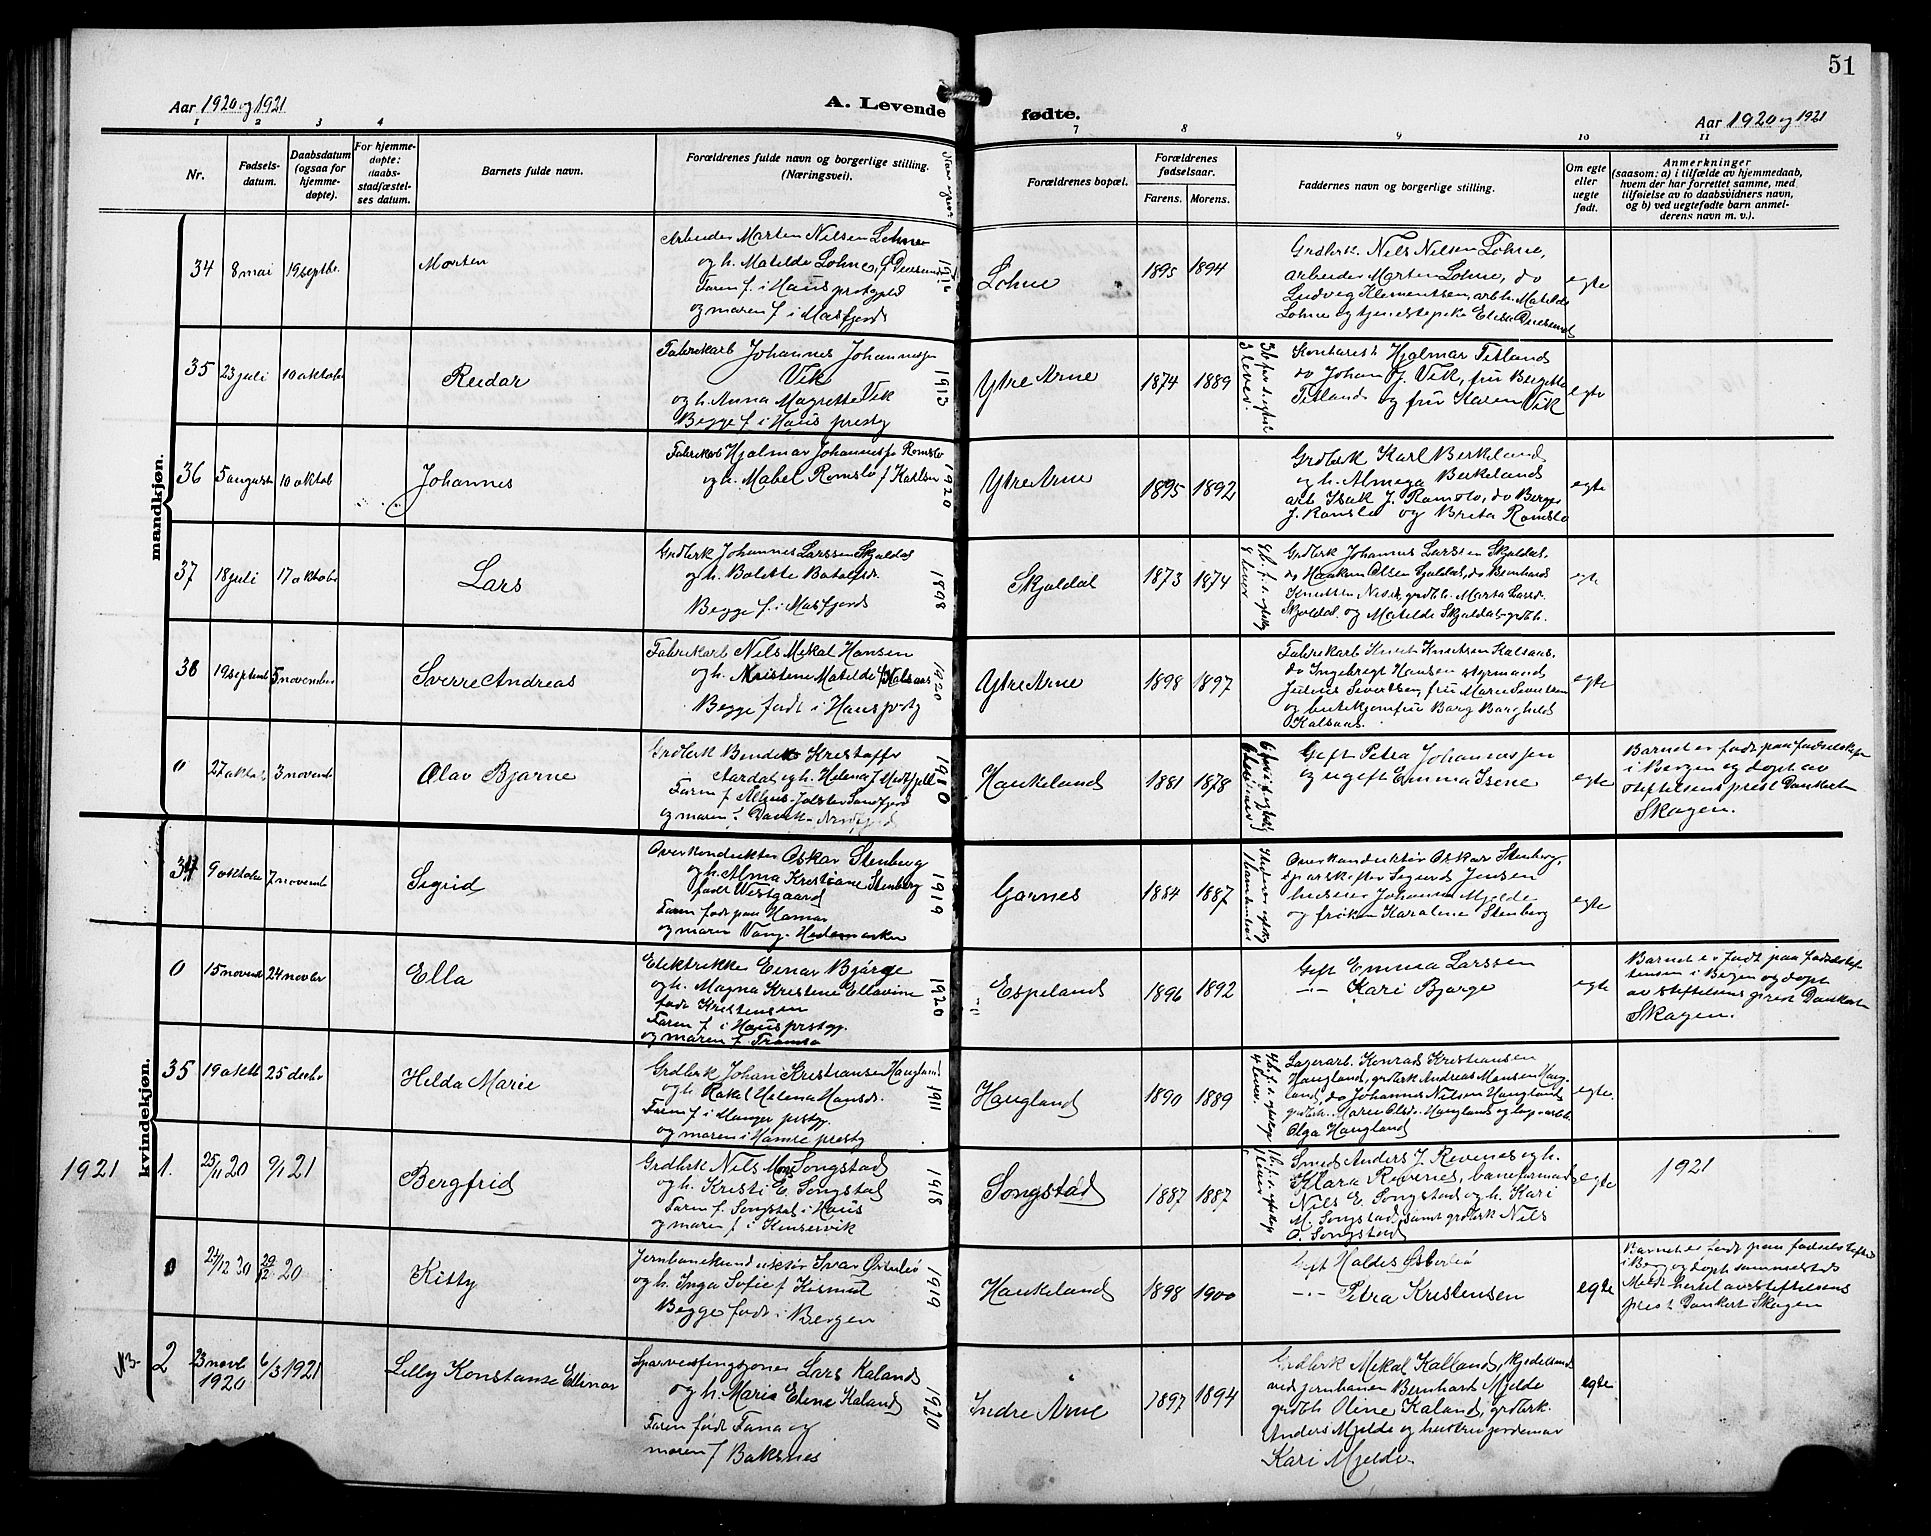 51
Aar 1920 og 1921
A. Levende
fødte.
Aar 1920 og 1921
1 2 3 4
7 8 9 10 11
Nr.
Fødsels-
datum.
Daabsdatum
(ogsaa for
hjemme-
døpte).
For hjemme-
døpte:
daabs-
stadfæstel-
ses datum.
Barnets fulde navn.
Forældrenes fulde navn og borgerlige stilling.
(Næringsvei).
Forældrenes bopæl.
Forældrenes
fødselsaar.
Farens. Morens.
Faddernes navn og borgerlige stilling.
Om egte
eller
uegte
født.
Anmerkninger
(saasom: a) i tilfælde av hjemmedaab,
hvem der har forrettet samme, med
tilføielse av to daabsvidners navn,
og b) ved uegtefødte barn anmel-
derens navn m. v.).
mandkjøn.
34 8 mai 19 septbr. Morten
Arbeider Morten Nilsen Lohne
og h. Matilde Lohne, f. Duesund
Faren f. i Haus prstgjeld
og moren f. i Masfjord
1916
Lohne 1895 1894
Grdbrk. Nils Nilsen Lohne,
arbeider Morten Lohne, do
Ludvig Klementsen, arbh. Matilde
Lohne og tjenestepike Elisa Duesund
egte
35 23 juli 10 oktober Reidar
Fabrikarb Johannes Johannessen
Vik
og h. Anna Magrette Vik
Begge f. i Haus prestg
1913
Ytre Arne 1874 1889
3 lever.
Kontorist Hjalmar Titland
do Johan J. Vik, fru Bergitte
Titland og fru Karen Vik
egte
36 5 august 10 oktob Johannes
Fabrikarb Hjalmar Johannessen Romslo
og h. Mabel Romslo f. Karlsen
1920
Ytre Arne 1895 1892
Grdbrk Karl Birkeland
og h. Almega Birkeland
arb Isak J. Romslo, do Berge
J. Romslo og Brita Romslo
egte
37 18 juli 17 oktober Lars
Grdbrk Johannes Larssen Skjeldal
og h. Bolette Botolfsdr.
Begge f. i Masfjord
1898
Skjeldal 1873 1874
Grdbrk Johannes Larssen Skjeldal,
do Haakon Olsen Skjeldal, do Bernhard
Knutsen, grdbh. Marta Larsd.
Skjeldal og Matilde Skjeldal grdbh.
egte
38 19 septemb 5 november Sverre Andreas
Fabrikarb Nils Mikal Hansen
og h. Kristine Matilde f. Kalsaas
Begge født i Haus prstg
1920
Ytre Arne 1898 1897
Fabrikarb Knut Knutsen Kalsaas,
do Ingebrigt Hansen styrmand
Julius Sivertsen, fru Marie Sivertsen
og butikjomfru Borg Borghild
Kalsaas.
egte
0 27 oktob 3 novemb Olav Bjarne
Grdbrk Bendik Kristoffer
Aardal og h. Helena f. Midtfjell
Faren f. Jølster Søndfjord
og moren
1910
Haukeland 1881 1878
Gift Petra Johannessen
og ugift Emma Isene
egte
Barnet er født paa fødselsstif
i Bergen og døpt av
stiftelsens prest Dankert
Skagen.
kvindekjøn.
34 9 oktobe 7 novemb Sigrid
Overkonduktør Oskar Stenberg
og h. Alma Kristiane Stenberg
født Westgaard
Faren født paa Hamar
og moren Vang. Hedemarken
1919
Garnes 1884 1887
Overkonduktør Oskar Stenberg,
Sigurd Jensen
hustru Johanna Mjelde
og frøken Karoline Stenberg
egte
0 15 novemb 24 novbr Ella
Elektrikker Einar Bjørge
og h. Magna Kristine Ellavine
født Kristensen
Faren f. i Haus prstgj.
og moren f. Tromsø
1920
Espeland 1896 1892
Gift Emma Larssen
-"- Kari Bjørge
egte
Barnet er født paa fødselsstif
telsen i Bergen og døpt
av stiftelsens prest Dankert
Skagen.
35 19 oktb 25 decbr Helda Marie
Grdbrk Johan Kristiansen Haugland
og h. Rakel Helena Hansdr.
Faren f. i Manger prstg.
og moren i Hamre prestg
1911
Haugland 1890 1889
4 lever.
Lagerarb. Konrad Kristiansen
Haugland, grdbrk Andreas Monsen Haug-
land, do Johannes Nilsen Haugland
grdbrk. Marie Olsdr. Haugland og
Olga Haugland
egte.
1921
1. 25/11 20 9/1 21 Bergfrid
Grdbrk Nils Mons Songstad
og h. Kristi E. Songstad
Faren f. Songstad i Haus
og moren f. i Kinservik
1918
Songstad 1887 1887
1 lever
Smed Anders J. Revenes og h.
Klara Revenes, baneformand
Nils E. Songstad og h. Kari
M. Songstad, samt grdbrk Nils
O. Songstad
egte
1921
0 24/12 20 29/12 20 Kitty
Jernbanekonduktør Ivar Østerbø
og h. Inga Sofie f.
Begge født i Bergen
1919
Haukeland 1898 1900
Gift Haldis Østerbø
-"- Petra Kristensen
egte
Barnet er født paa fødselsstiftel
i Berg og døpt sammesteds
Meldt hertil av stiftelsens
prest Dankert Skagen
2 23 novb 1920 6/3 1921 Lilly Konstanse Ellinor
Lars Kaland
og h. Marie Eline Kaland
Faren født Fana og
moren f. Baksnes
1920
Indre Arne 1897 1894
Grdbrk Mikal Kalland,
ved jernbanen Bernhard Mjelde
grdbh Oline Kaland, grdbrk.
Anders Mjelde og hustru jordemor
Kari Mjelde.
egte